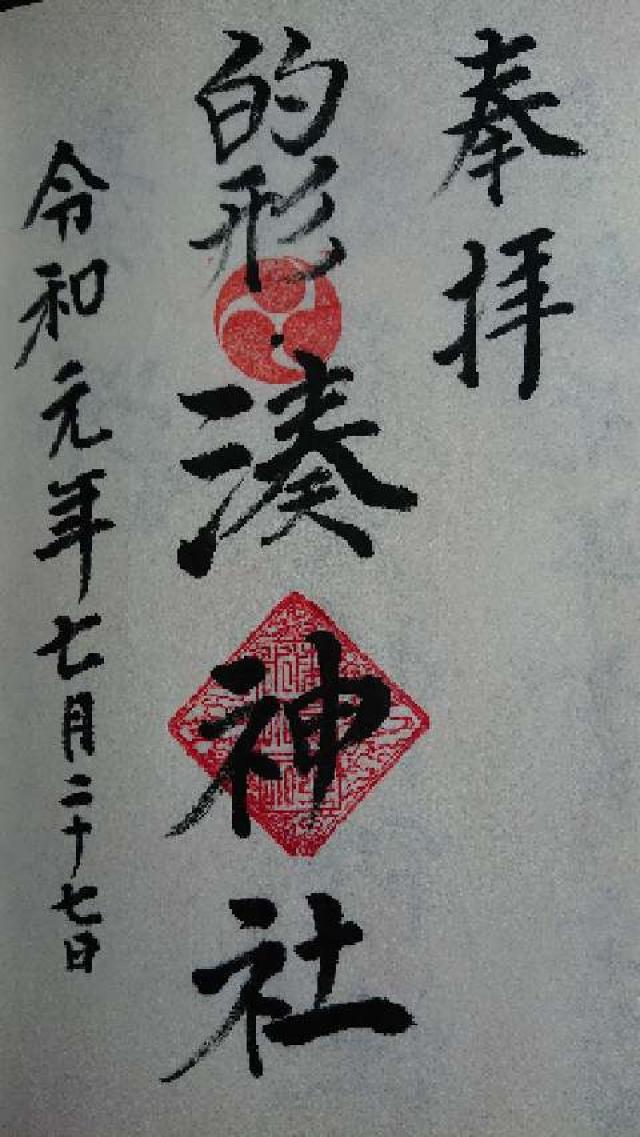 奉拝
的形
湊神社
令和元年七月二十七日